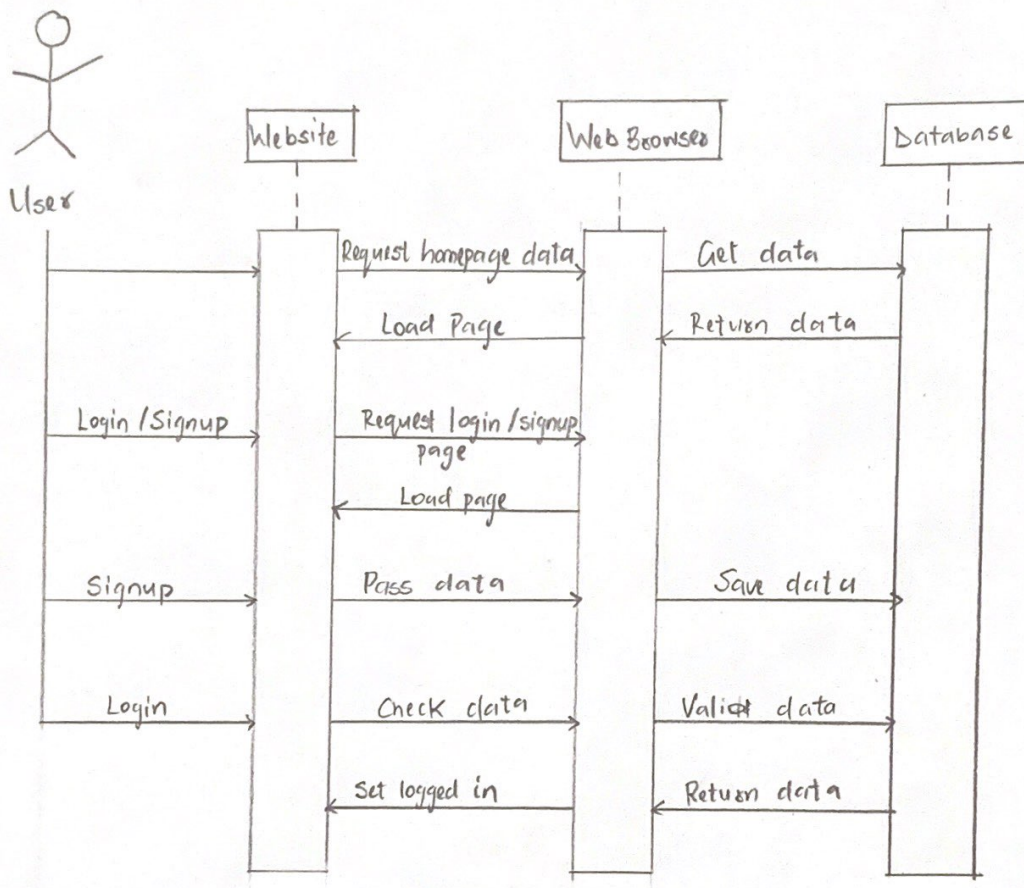 Website
Web Browser
Database
User
Request homepage data
Get data
Load Page
Return data
Login/Signup
Request login/signup
page
Load page
Signup
Pass data
Save data
Login
Check data
Valid data
Set logged in
Return data